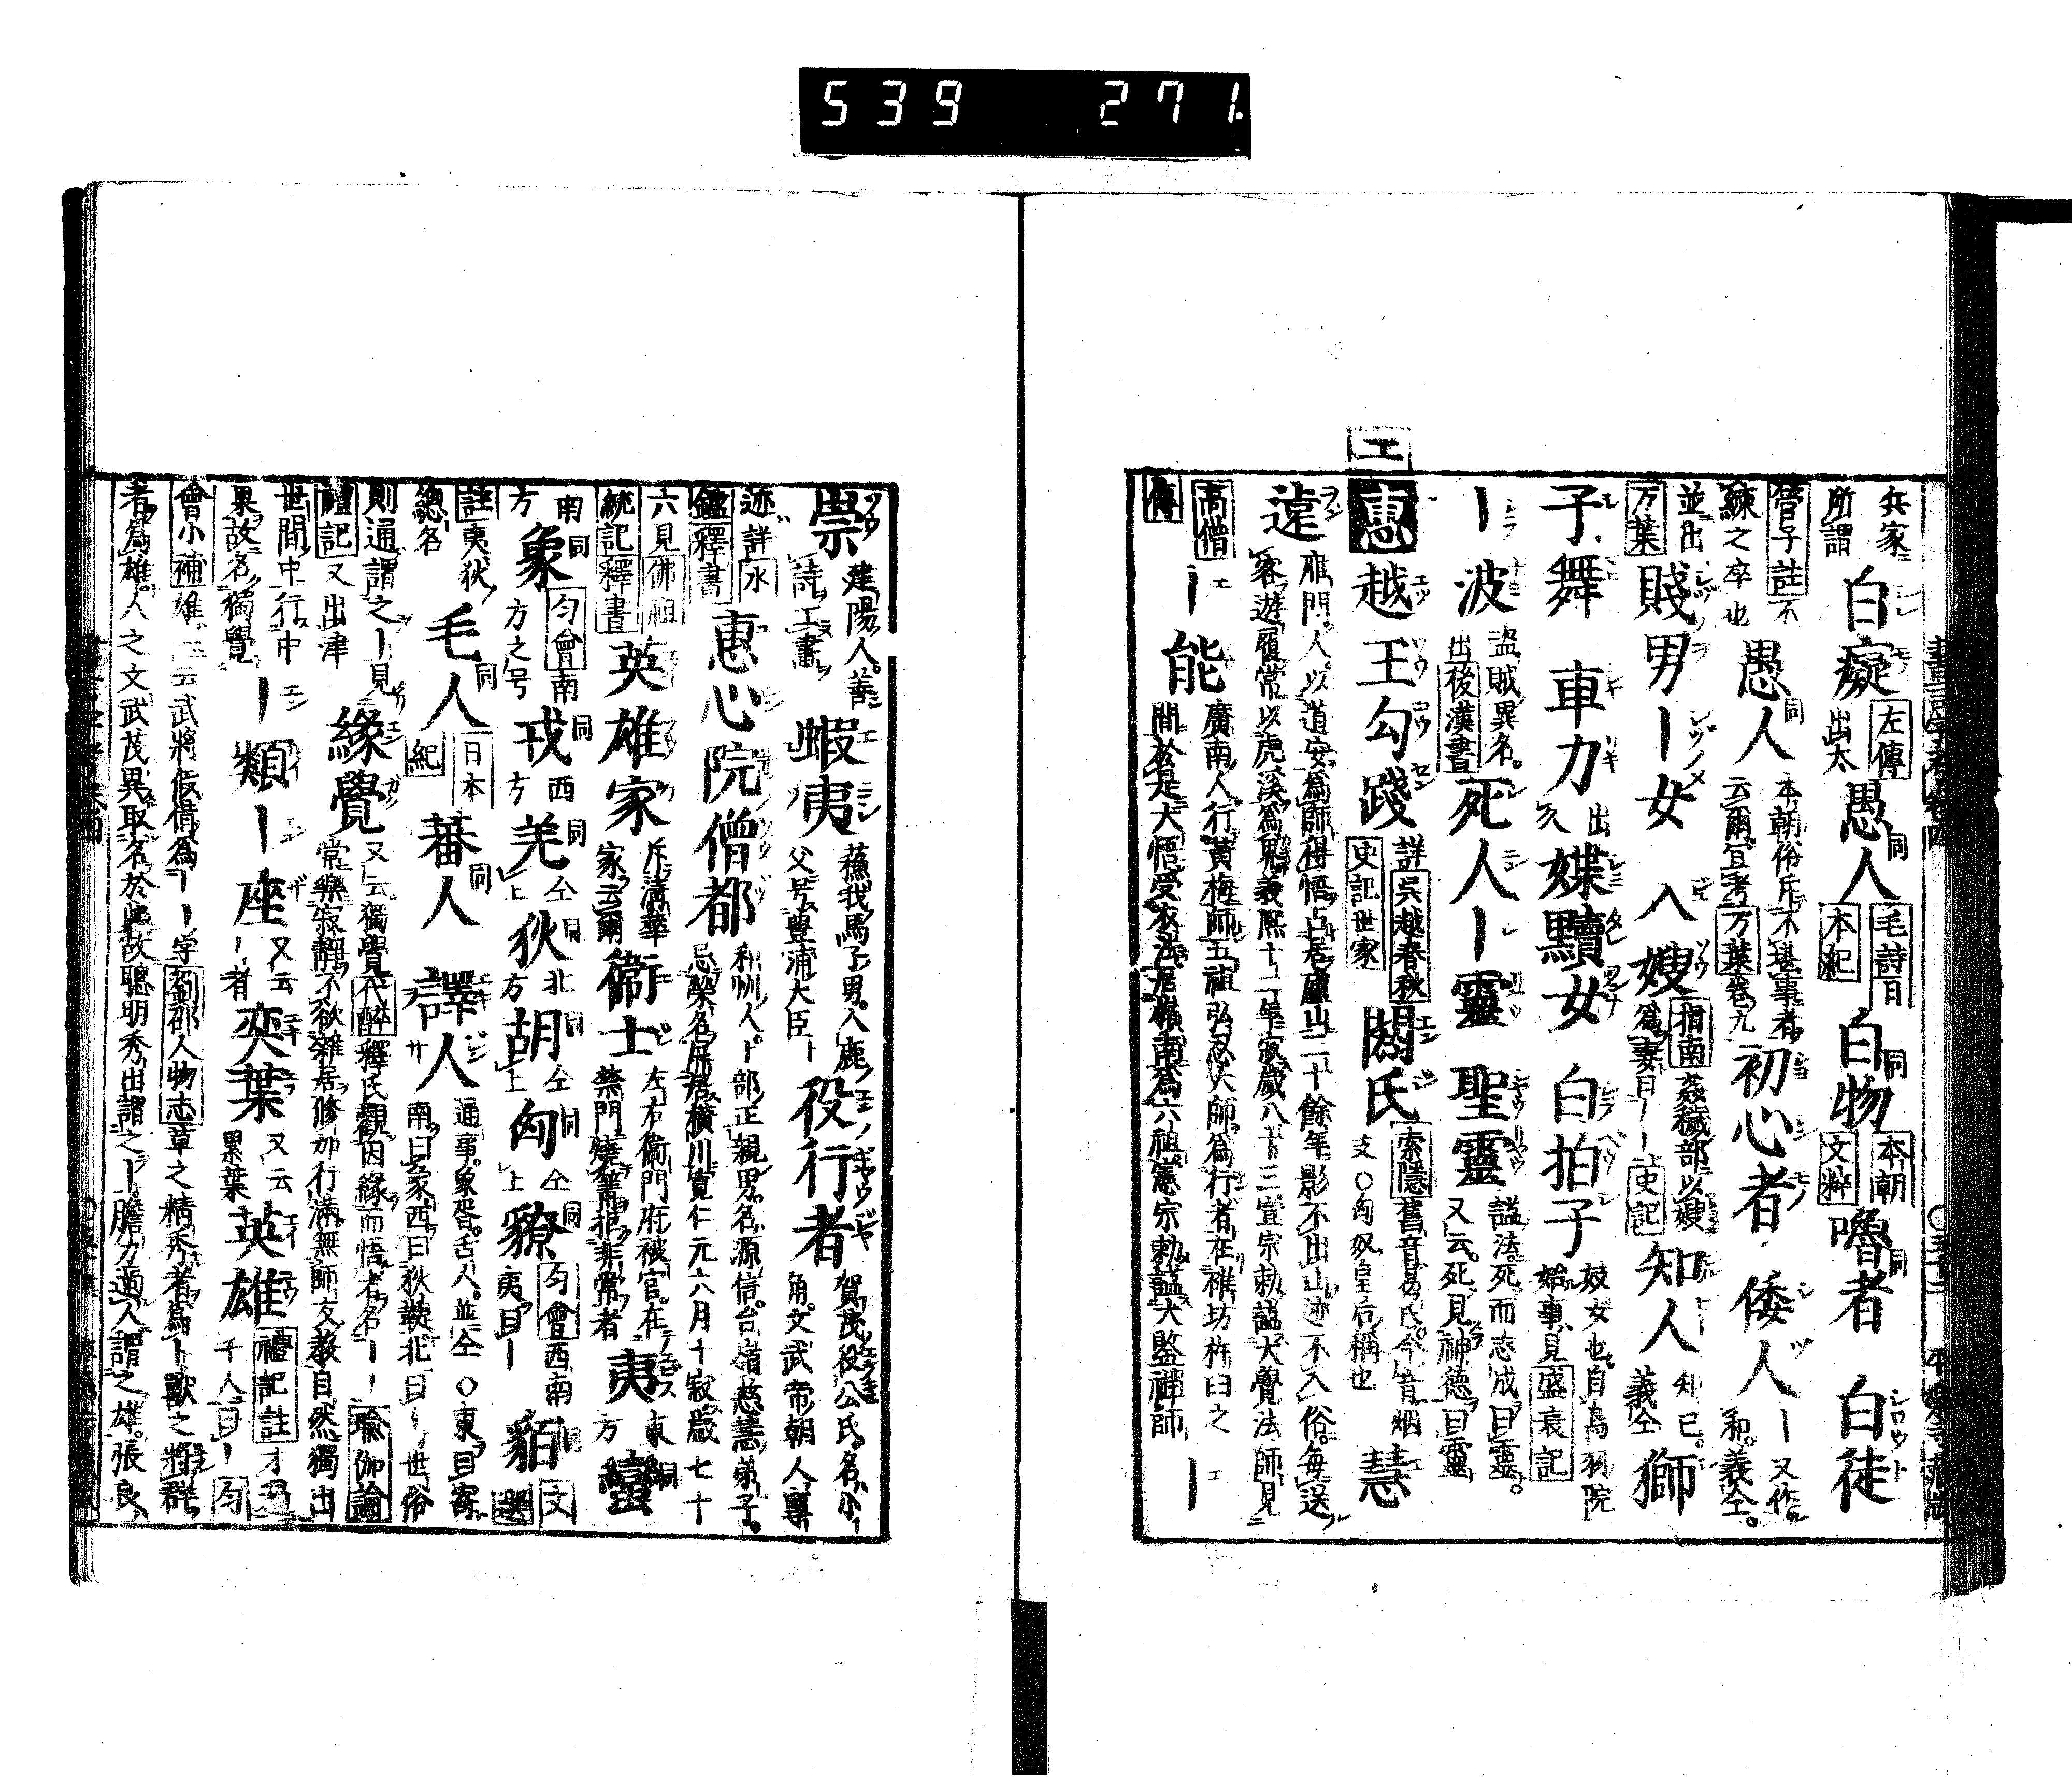 539 271.
兵家所謂 白癡 左傳出太 愚人 同 毛詩日本紀 白物 同 本朝文粹 嚕者 同 白徒
管子註不練之卒也 愚人 同 本朝俗斥不堪事者云爾宜考万葉卷九 初心者 倭人 ー又作和義仝
並出万葉 賤男ー女 入嫂 指南姦穢部以嫂爲妻曰ーー史記 知人 知已義仝 獅
子舞 車力 出 媟黷女 白拍子 妓女也自鳥羽院始事見盛衰記
ー波 盗賊異名出後漢書 死人ー靈 聖靈 謚法死而志成曰靈又云死見神德曰靈
エ
惠 越王勾踐 詳吳越春秋史記世家 閼氏 索隱舊音曷氏今音烟支〇匈奴皇后稱也 慧
遠 雁門人以道安爲師得悟占居廬山三十餘年影不出山迹不入俗每送客遊履常以虎溪爲界義熙十二年寂歲八十三宣宗勅謚大覺法師見
高僧傳 ー能 廣南人行黃梅師五祖弘忍大師爲行者在碓坊杵臼之間於是大悟受衣法居嶺南爲六祖憲宗勅謚大鑒禪師 ー
崇 建陽人善詩工書 蝦夷 蘓我馬子男入鹿父号豊浦大臣ー 役行者 賀茂役公氏名小角文武帝朝人專
迹詳水鏡釋書 惠心院僧都 和州人ト部正親男名源信台嶺慈慧弟子忌榮名屏居橫川寛仁元六月十寂歲七十
六見佛祖統記釋書 英雄家 斥清華家云爾 衞士 左右衞門府被官在禁門燒篝拒非常者 夷 東方 蠻 同
南方 象 同 匀會南方之号 戎 同 西方 羌 同 仝上 狄 同 北方 胡 同 仝上 匈 同 仝上 獠 同 匀會西南夷曰ー 貊 同 文選
註夷狄總名 毛人 同 日本紀 蕃人 同 譯人 通事象胥舌人並仝〇東曰寄南曰象西曰狄鞮北曰ー世俗
則通謂之ー見禮記又出津 緣覺 又云獨覺代醉釋氏觀因緣而悟者名ーー瑜伽論常樂寂靜不欲雜居修加行滿無師友教自然獨出
世間中行中果故名獨覺 ー類ー座 又云ー者 奕葉 又云累葉 英雄 禮記註才千人曰ー匀
會小補雄云武將假借爲ーー字劉邵人物志草之精秀者爲ー獸之將群
者爲雄人之文武茂異取名於此故聰明秀出謂之ー膽力過人謂之雄張良